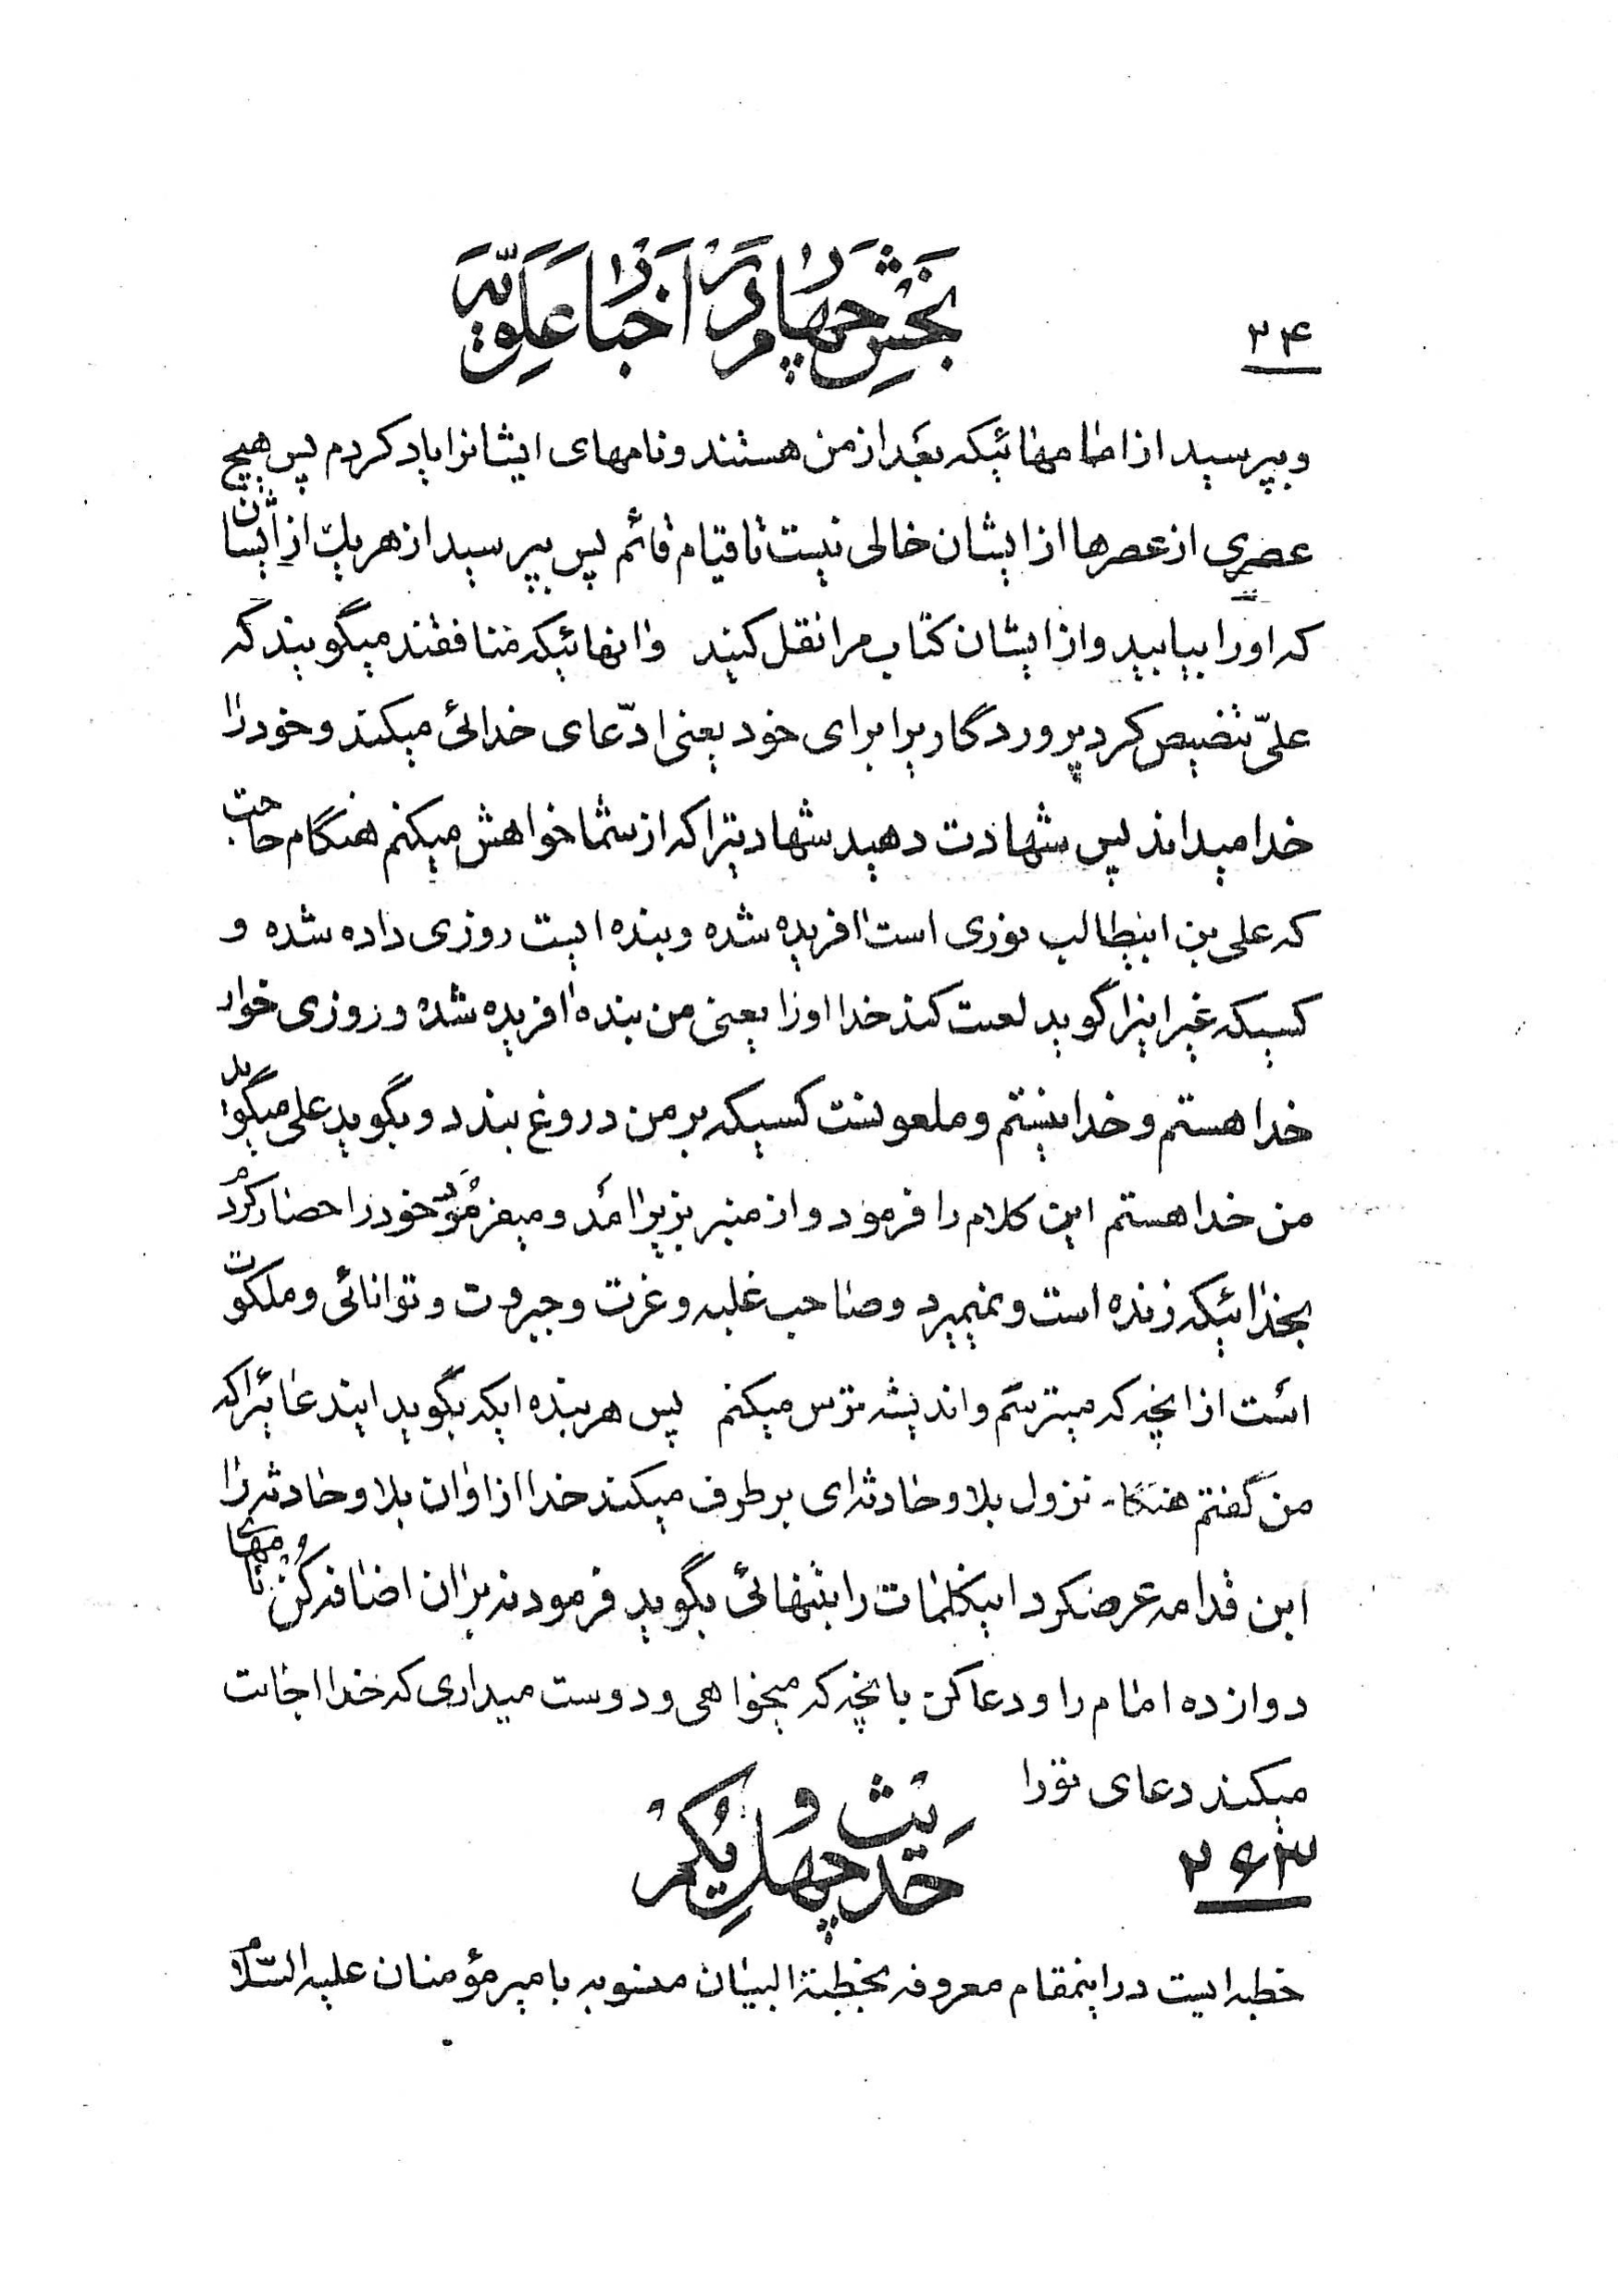 ۲۴
بخش چهارم در اخبار علویه
و بپرسید از امامهائیکه بعد از من هستند و نامهای ایشانرا یاد کردم پس هیچ
عصری از عصرها از ایشان خالی نیست تا قیام قائم پس بپرسید از هر یک از ایشان
که او را بیابید و از ایشان کتاب مرا نقل کنید و انهائیکه منافقند میگویند که
علیّ تنصیص کرد پروردگاریرا برای خود یعنی ادّعای خدائی میکند و خود را
خدا میداند پس شهادت دهید شهادتیرا که از شما خواهش میکنم هنگام حاجت
که علی بن ابیطالب نوری است افریده شده و بنده ایست روزی داده شده و
کسیکه غیر اینرا گوید لعنت کند خدا او را یعنی من بنده افریده شده و روزی خوار
خدا هستم و خدا نیستم و ملعونست کسیکه بر من دروغ بندد و بگوید علی میگوید
من خدا هستم این کلام را فرمود و از منبر بزیر امد و میفرمود خود را حصار کردم
بخدائیکه زنده است و نمیمیرد و صاحب غلبه و عزت و جبروت و توانائی و ملکوت
است از انچه که میترسم و اندیشه ترس میکنم پس هر بنده ایکه بگوید ایندعائیرا که
من گفتم هنگام نزول بلا و حادثه‌ای بر طرف میکند خدا از او ان بلا و حادثه را
ابن قدامه عرضکرد اینکلمات را بتنهائی بگوید فرمودند بران اضافه کن نامهای
دوازده امام را و دعا کن بانچه که میخواهی و دوست میداری که خدا اجابت
میکند دعای تو را
۲۶۳
حدیث چهل و یکم
خطبه ایست در اینمقام معروفه بخطبة البیان منسوبه بامیر مؤمنان علیه السّلام